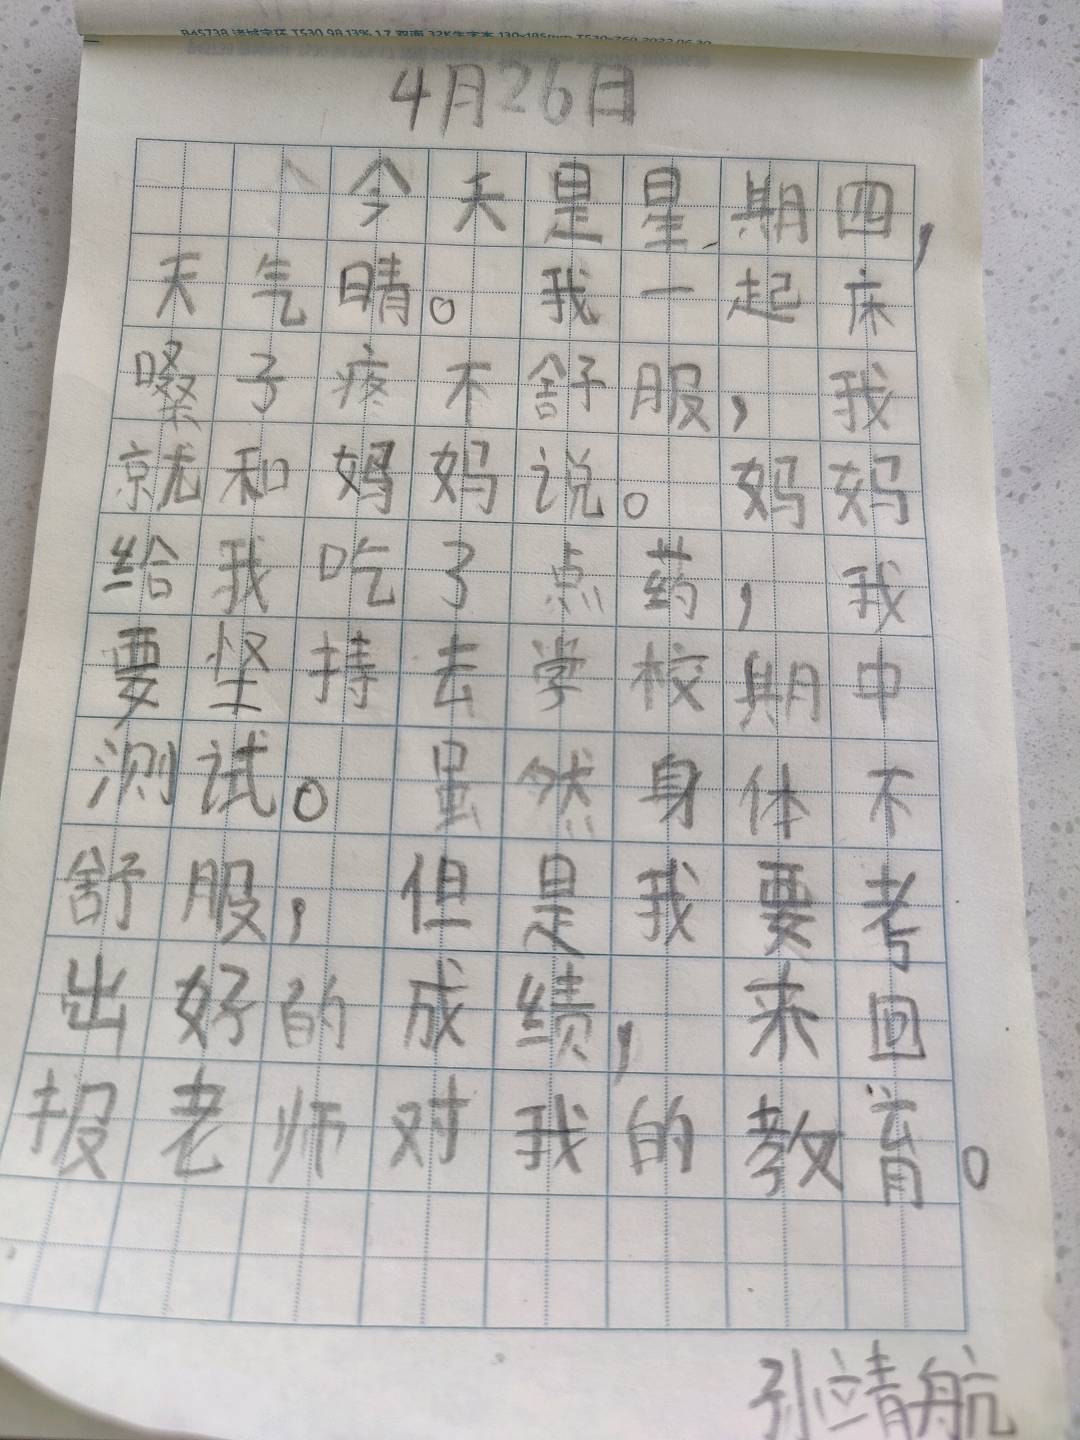 4月26日
今天是星期四，
天气晴。我一起床
嗓子疼不舒服，我
就和妈妈说。妈妈
给我吃了点药，我
要坚持去学校期中
测试。虽然身体不
舒服，但是我要考
出好的成绩，来回
报老师对我的教育。
孙靖航